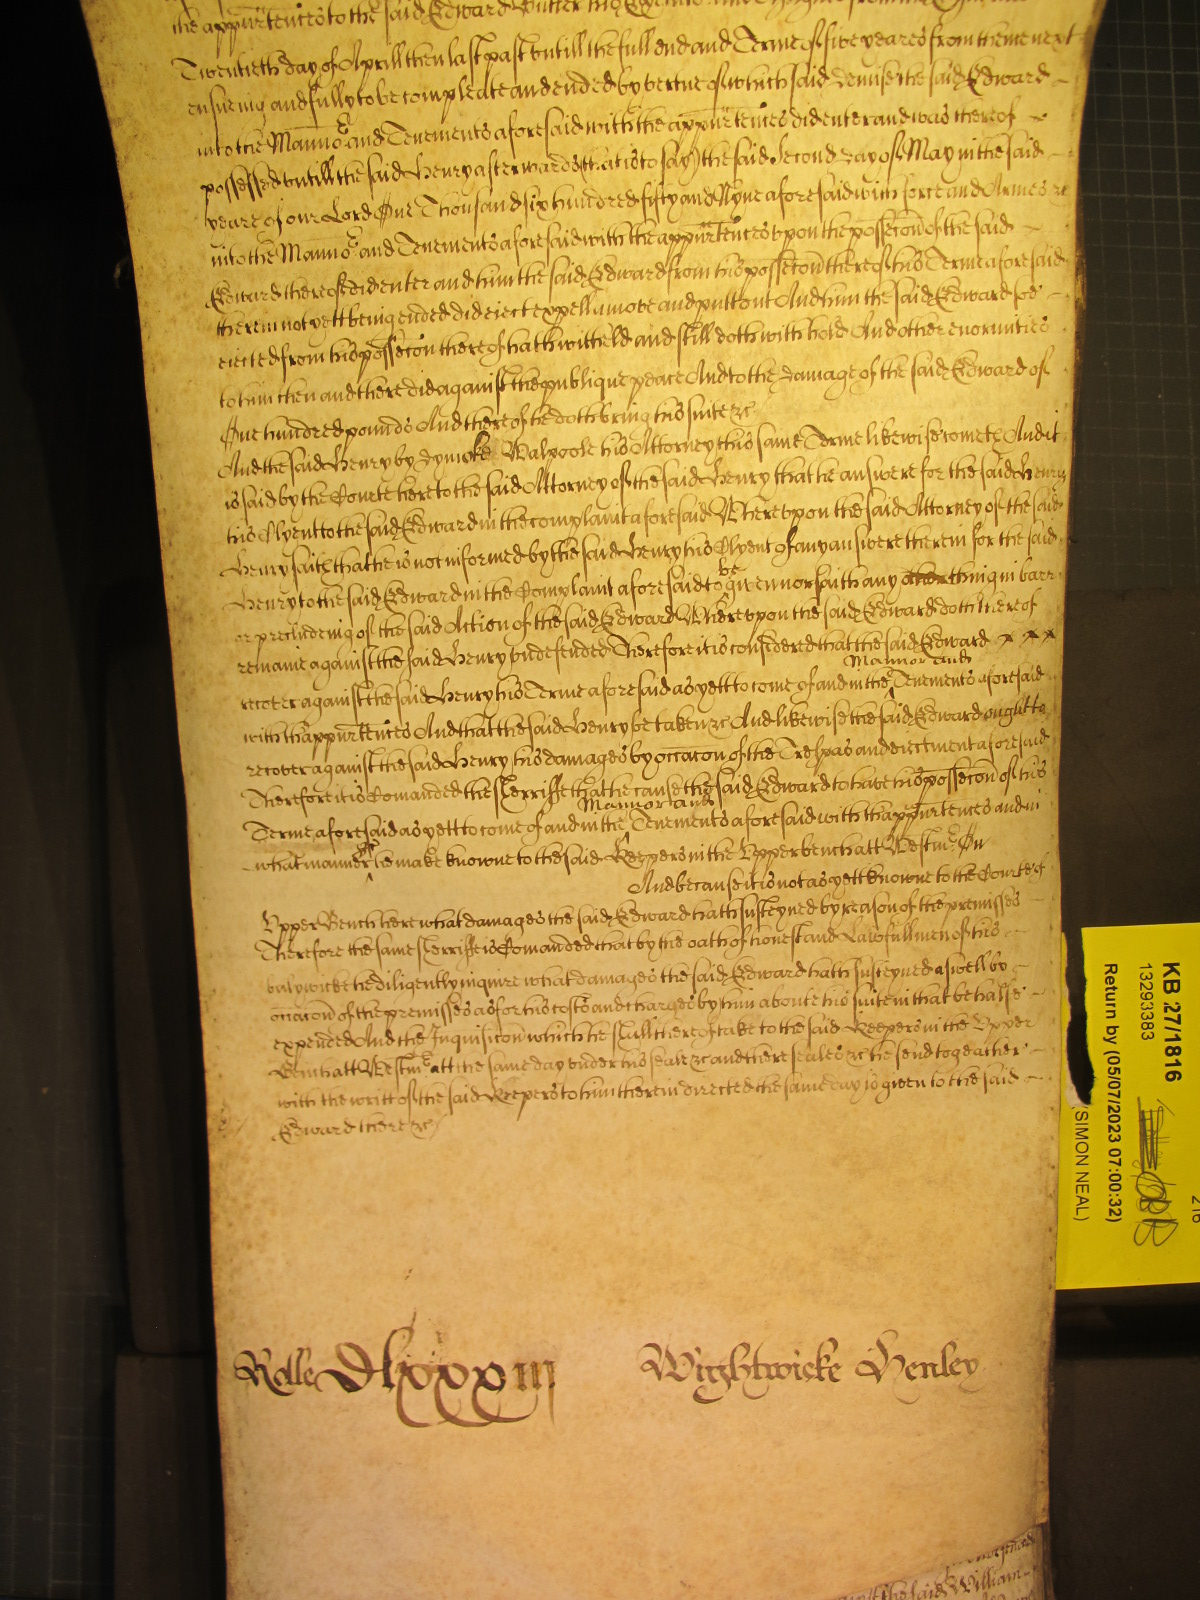 the appurtences to the said Edward Butter his
Twentieth day of Aprill then last past untill the full end and Terme of five yeares from thence next
ensueing and fully to be compleate and ended by vertue of which said Demise the said Edward
into the Manno:r and Tenements aforesaid with the appurtences did enter and was thereof
possessed untill the said Henry afterwards (that is to say) the said Second Day of May in the said
yeare of our Lord One Thousand six hundred fifty and Nyne aforesaid with force and Armes &c
into the Manno:r and Tenements aforesaid with the appurtences upon the possecon of the said
Edward thereof did enter and him the said Edward from his possecon thereof his Terme aforesaid
therein not yett being ended did eject expell amove and putt out And him the said Edward soe
ejected from his possecon thereof hath witheld and still doth withhold And other enormities
to him then and there did against the publique peace And to the Damage of the said Edward of
One hundred pounds And thereof he doth bring his suite &c
And the said Henry by Dymoke Walpoole his Attorney this same Terme likewise cometh And it
is said by the Courte here to the said Attorney of the said Henry that he answere for the said Henry
his Clyent to the said Edward in the complaint aforesaid Whereupon the said Attorney of the said
Henry saith that he is not informed by the said Henry his Clyent of any answere therein for the said
Henry to the said Edward in the Complaint aforesaid to be given nor saith any other thing in barr
or precludeing of the said Action of the said Edward Whereupon the said Edward doth thereof
remaine against the said Henry undefended Therefore it is considered that the said Edward
recover against the said Henry his Terme aforesaid as yett to come of and in the Mannor and Tenements aforesaid
with thappurtences And that the said Henry be taken &c And likewise the said Edward ought to
recover against the said Henry his damages by occacon of the Trespas and ejectment aforesaid
Therefore it is Comanded the Sherriffe that he cause the said Edward to have his possecon of his
Terme aforesaid as yett to come of and in the Mannor and Tenements aforesaid with thappurtences and in
what manner he make knowne to the said Keepers in the Upper bench att Westm:r On
And because it is not as yett knowne to the Courte of
Upper Bench here what damages the said Edward hath susteyned by reason of the premisses
Therefore the same Sherriffe is Comanded that by the oath of honest and Lawfull men of his
balywicke he diligently inquire what damages the said Edward hath susteyned aswell by
occacon of the premisses as for his costs and charges by him aboute his suite in that behalfe
expended And the Inquisicon which he shall thereof take to the said Keepers in the Upper
Bench att Westm:r att the same day under his seale &c and the seales &c he send togeather
with the writt of the said Keepers to him therein directed the same day is given to the said
Edward there &c
Rolle Dlxxxiii Wightwicke Henley
the said William
KB 27/1816
13293383
Return by (05/07/2023 07:00:32)
(SIMON NEAL)